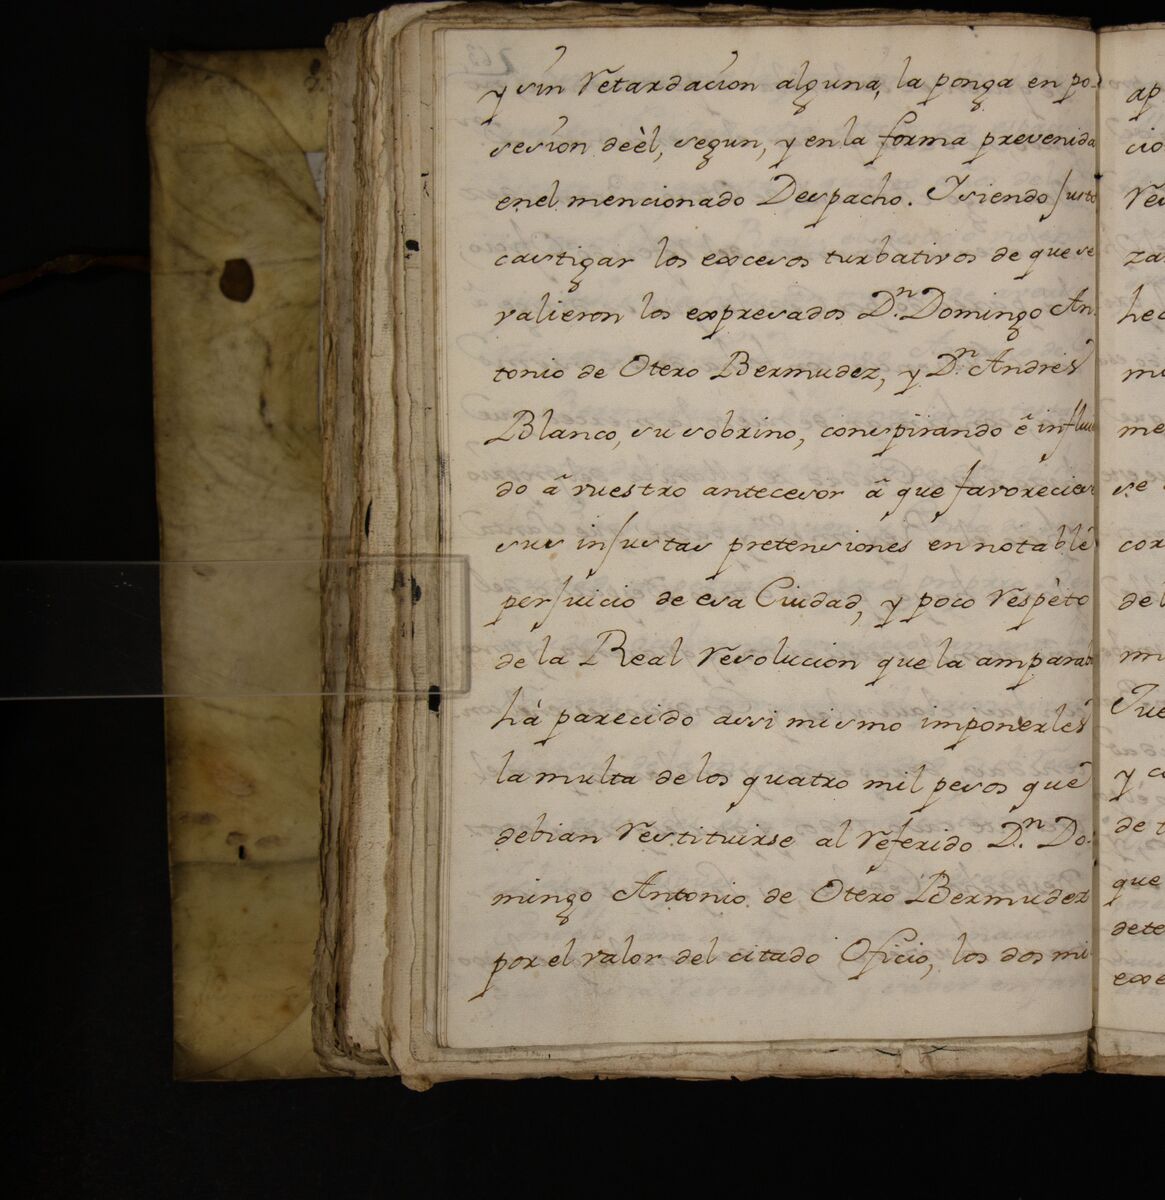 y sin retardacion alguna, la ponga en po-
sesion de èl, segun, y en la forma prevenida
en el mencionado Despacho. Y siendo justo
castigar los excesos turbativos de que se
valieron los expresados Dn. Domingo An-
tonio de Otero Bermudez, y Dn. Andres
Blanco, su sobrino, conspirando ê influien
do â vuestro antecesor â que favoreciese
sus injustas pretensiones en notable
perjuicio de esa Ciudad, y poco respèto
de la Real resolucion que la amparaba
hà parecido assi mismo imponerles
la multa de los quatro mil pesos que
debian restituirse al referido Dn. Do-
mingo Antonio de Otero Bermudez
por el valor del citado Oficio, los dos mil
ap
cio
re
za
hec
mi
me
se
cor
del
mi
Jue
y c
de t
que
dete
exe